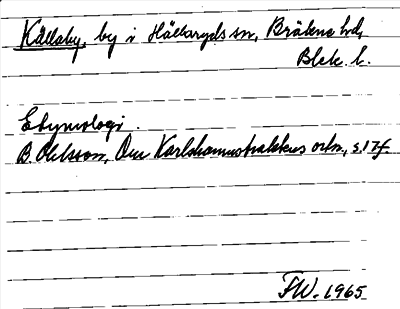 Källeby, by i Hällaryds sn, Bräkne hd,
Blek. l.
Etymologi.
B. Ohlsson, Om Karlshamnstraktens ortn., s. 17f.
FW. 1965